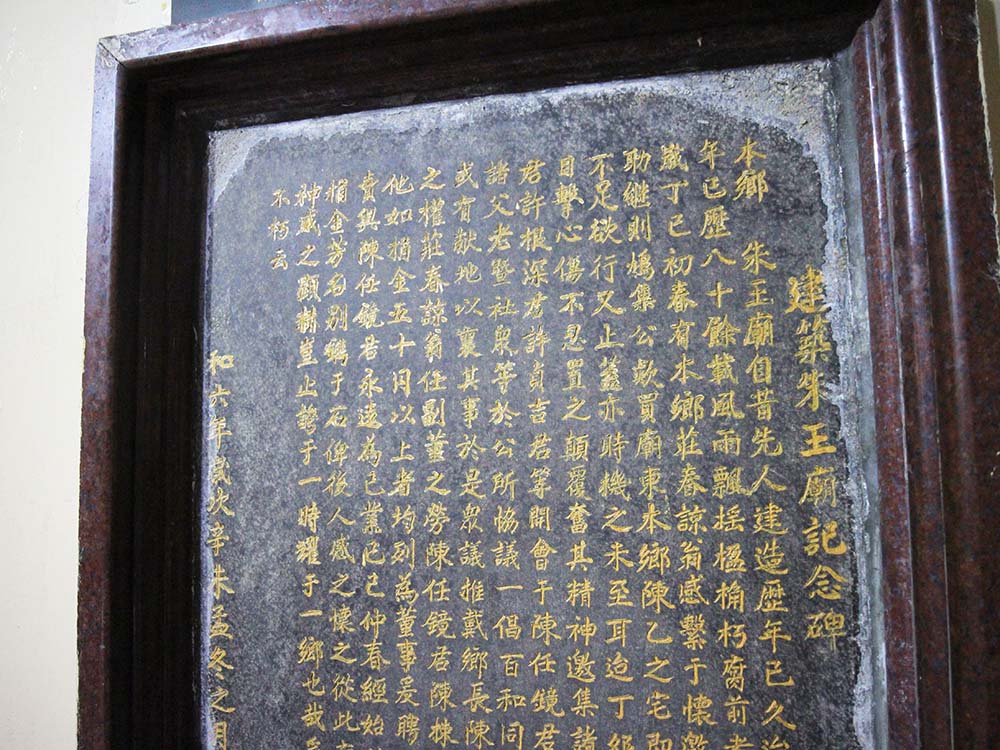 建築朱王廟記念碑
本鄉　朱王廟自昔先人建造歷年已久
年已歷八十餘載風雨飄搖楹桷朽腐前
歲丁巳初春有本鄉莊春諒翁感繫于懷邀
助繼則鳩集公款買廟東本鄉陳乙之宅
不足欲行又止蓋亦時機之未至耳迨丁
目擊心傷不忍置之顛覆奮其精神邀集諸
君許根深君許貞吉君等開會于陳任鏡君
諸父老暨社眾等於公所協議一倡百和同
或有獻地以襄其事於是眾議推戴鄉長陳
之權莊春諒翁任副董之勞陳任鏡君陳棟
他如捐金五十円以上者均列為董事爰聘
責與陳任鏡君永遠為己業己巳仲春經始
捐金芳名別鐫于石俾後人感之懷之從此
神威之顯赫豈止誇于一時耀于一鄉也哉
不朽云
和六年歲次辛未孟冬之月